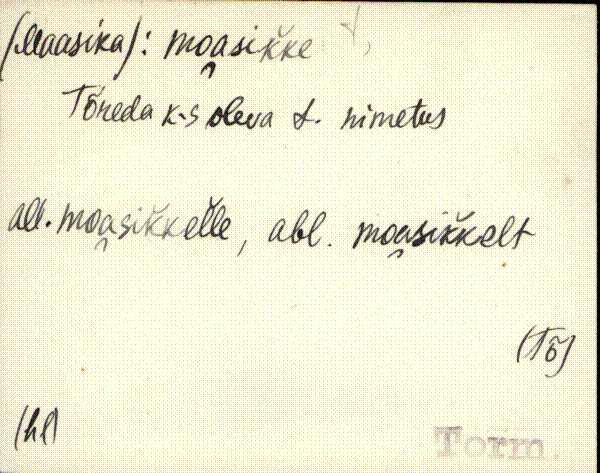 (Maasika): moa̯sik̆ke t,
Tõreda k-s oleva t. nimetus
all. moa̯sik̆kel̆le, abl. moa̯sik̆kelt
(Tõ)
(hl)
Torm.